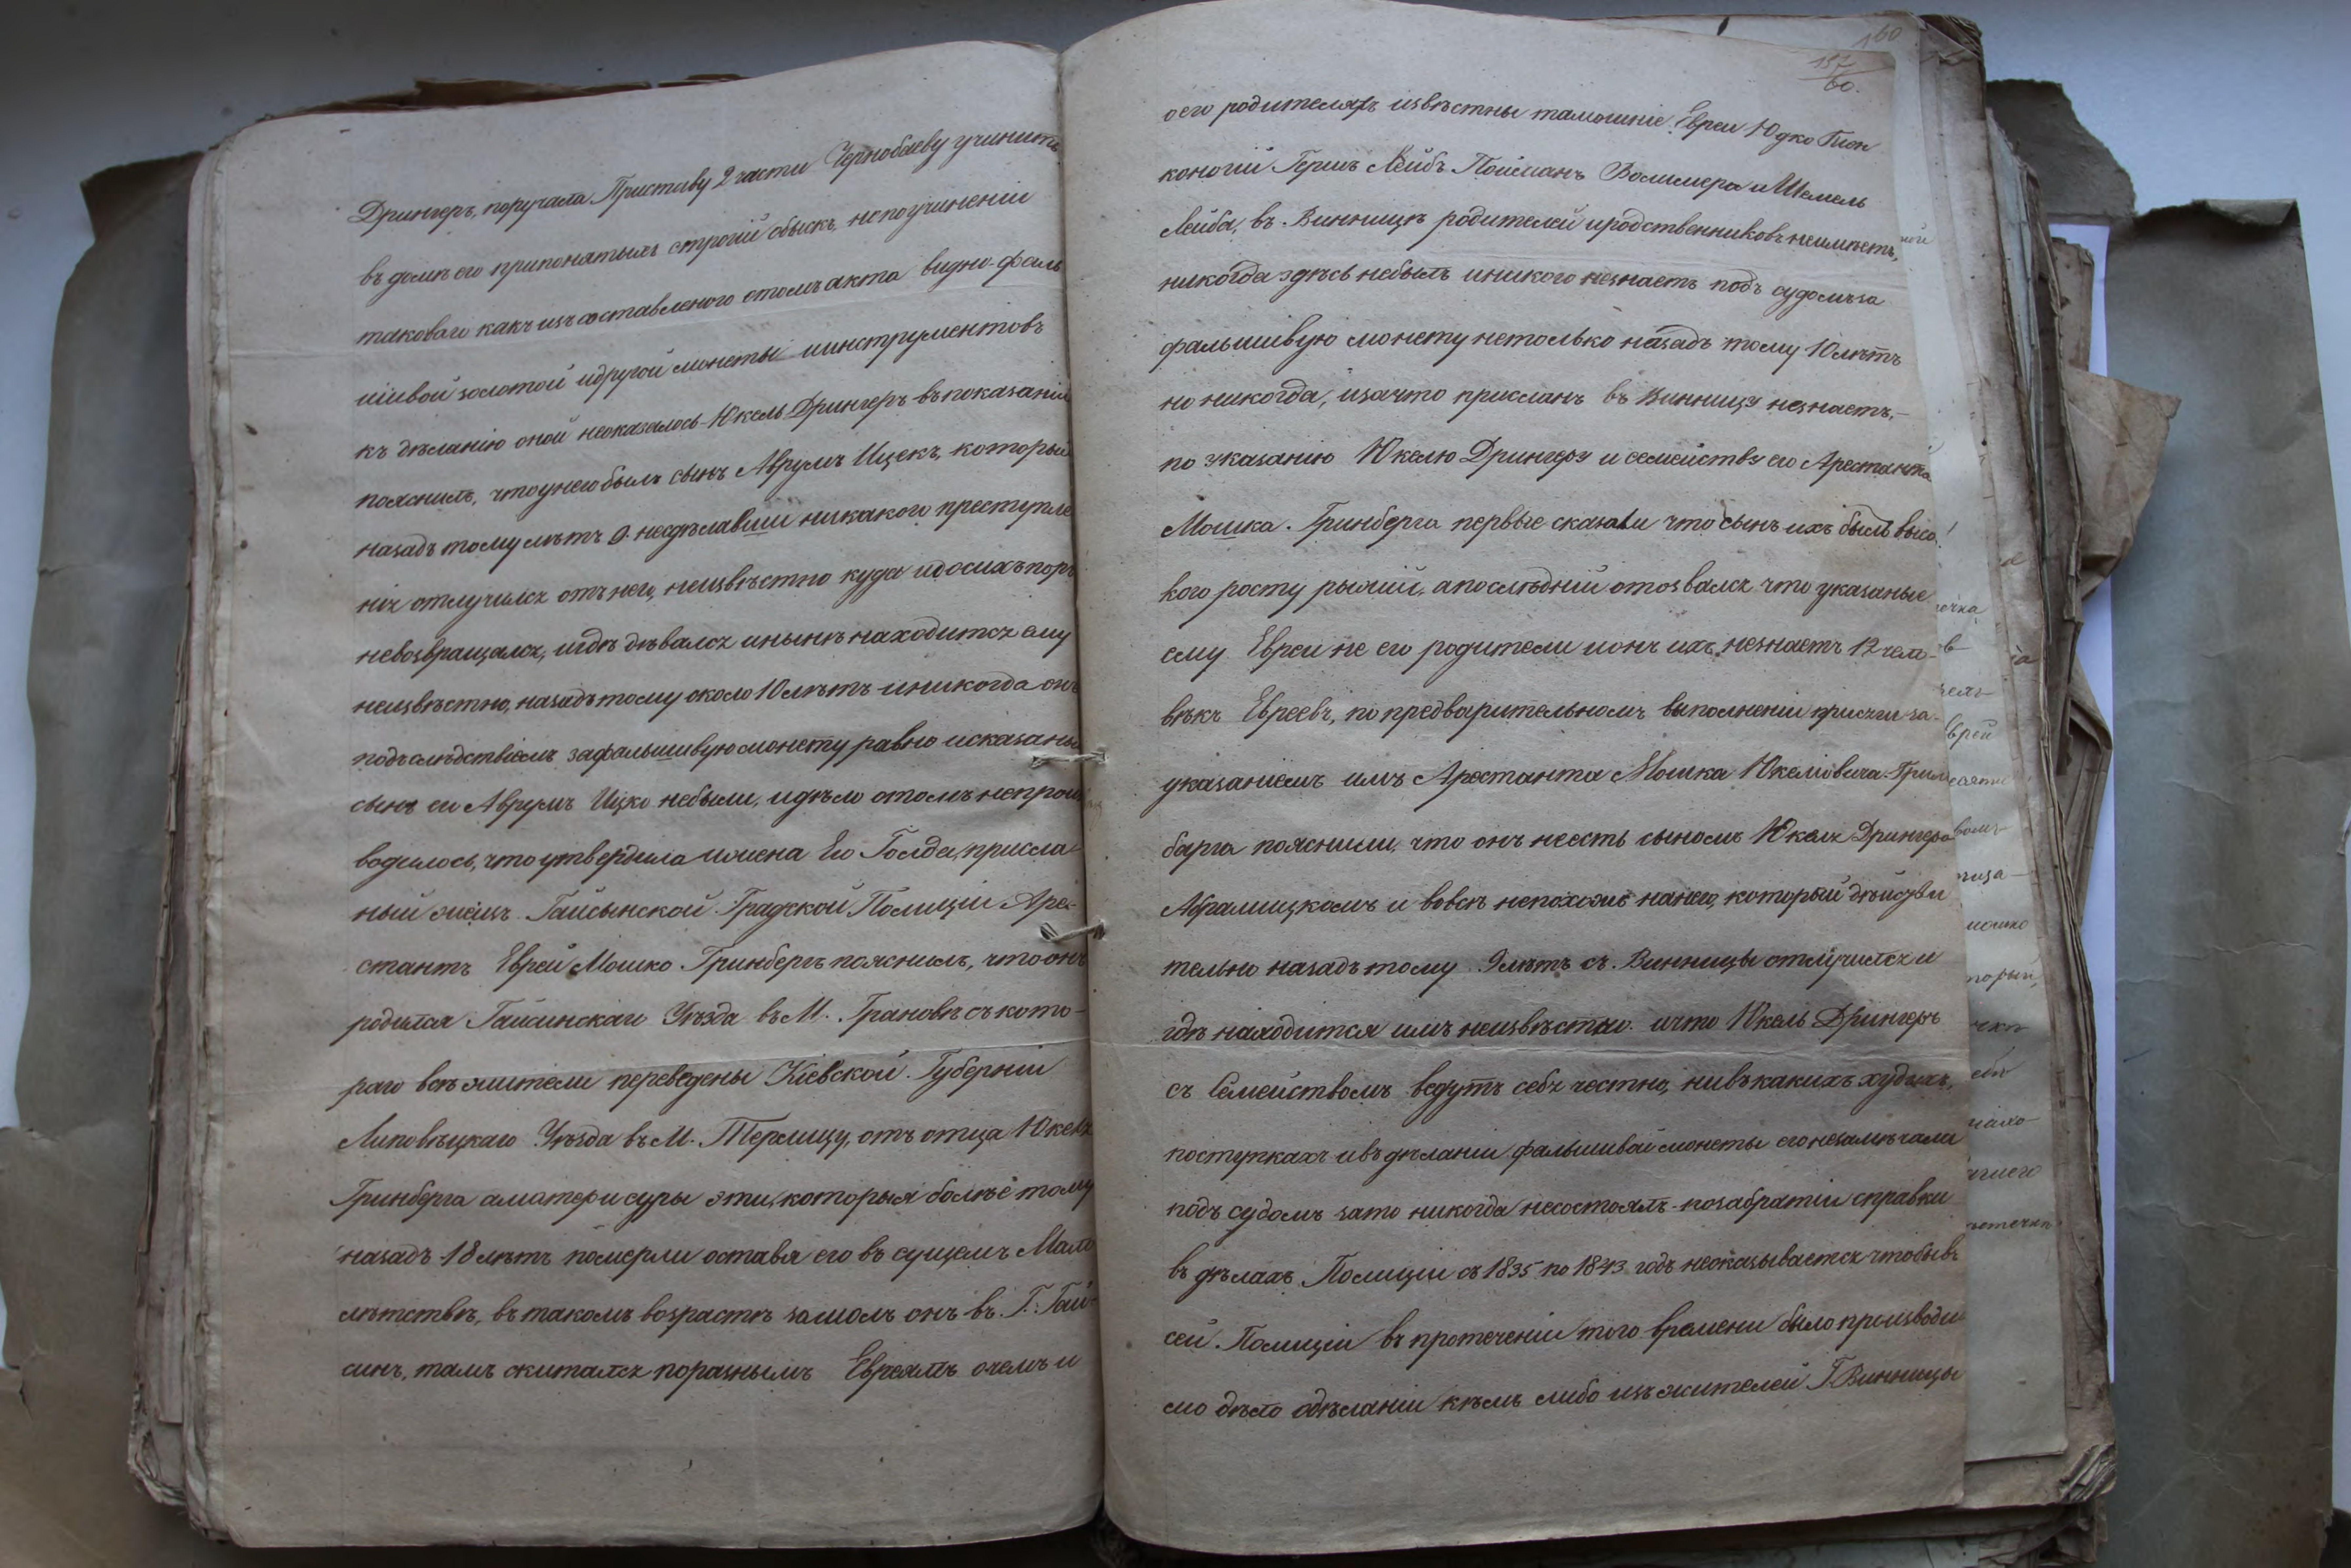 Дрингеръ, поручала Приставу 2 части Чернобаеву учинить
въ домѣ его припонятыхъ строгій обыскъ, но по учиненіи
таковаго какъ изъ составленого отомъ акта видно. фаль
шивой золотой идругой монеты иинструментовъ
къ дѣланію оной неоказалось. Юкель Дрингеръ въ показаніи
пояснилъ, что унего былъ сынъ Аврумъ Ицекъ, который
назадъ тому лѣтъ 9. несдѣлавши никакого преступле
нія отлучился отъ него, неизвѣстно куда идосихъ поръ
невозвращался, игдѣ дѣвался инынѣ находится ему
неизвѣстно, назадъ тому около 10 лѣтъ иникогда онъ
подъ слѣдствіемъ зафальшивую монету равно исказаный
сынъ его Аврумъ Ицко небыли, идѣло отомъ непроиз
водилось, что утвердила ижена Его Голда, присла
ный жеизъ Гайсынской Градской Полиціи Аре-
стантъ Еврей Мошко Гринбергъ пояснилъ, что онъ
родился Гайсинскаго Уѣзда въ М. Грановѣ съ кото-
раго всѣ жители переведены Кіевской Губерніи
Липовѣцкаго Уѣзда въ М. Терлицу, отъ отца Юкеля
Гринберга аматери суры эти, которыя болѣе тому
назадъ 18 лѣтъ померли оставя его въ сущемъ Мало
лѣтствѣ, въ такомъ возрастѣ зашолъ онъ въ Г. Гай-
синъ, тамъ скитался поразнымъ Евреямъ очемъ и
160
157
60.
оего родителяхъ извѣстны тамошніе Евреи Юдко
Гершъ Лейбъ Пойсманъ и Шемель
Лейба, въ Винницѣ родителей иродственниковъ неимѣетъ,
никогда здѣсь небылъ иникого незнаетъ подъ судомъ за
фальшивую монету нетолько назадъ тому 10 лѣтъ
но никогда, изачто присланъ въ Винницу незнаетъ,-
по указанію Юкелю Дрингеру и семейству его Арестанта
Мошка Гринберга первые сказали что сынъ ихъ былъ высо-
кого росту рыжій, апослѣдній отозвался что указаные
ему Евреи не его родители ионъ ихъ незнаетъ 12 чело-
вѣкъ Евреевъ, по предварительномъ выполненіи присяги за
указаніемъ имъ Арестанта Мошка Юкелювича Грин
барга пояснили, что онъ неесть сыномъ Юкеля Дрингера
Абрамицкомъ и вовсѣ непохожъ нанего, который дѣйстви
тельно назадъ тому 9 лѣтъ съ Винницы отлучился и
гдѣ находится имъ неизвѣстно. ичто Юкель Дрингеръ
съ Семействомъ ведутъ себя честно, нивъкакихъ худыхъ
поступкахъ ивъ дѣланіи фальшивой монеты его незамѣчали
подъ судомъ зато никогда несостоялъ - позабратіи справки
въ дѣлахъ Полиціи съ 1835 по 1843 годъ неоказывается чтобывъ
сей Полиціи въ протеченіи того времени было производи
мо дѣло одѣланіи кѣмъ либо изъ жителей Г. Винницы